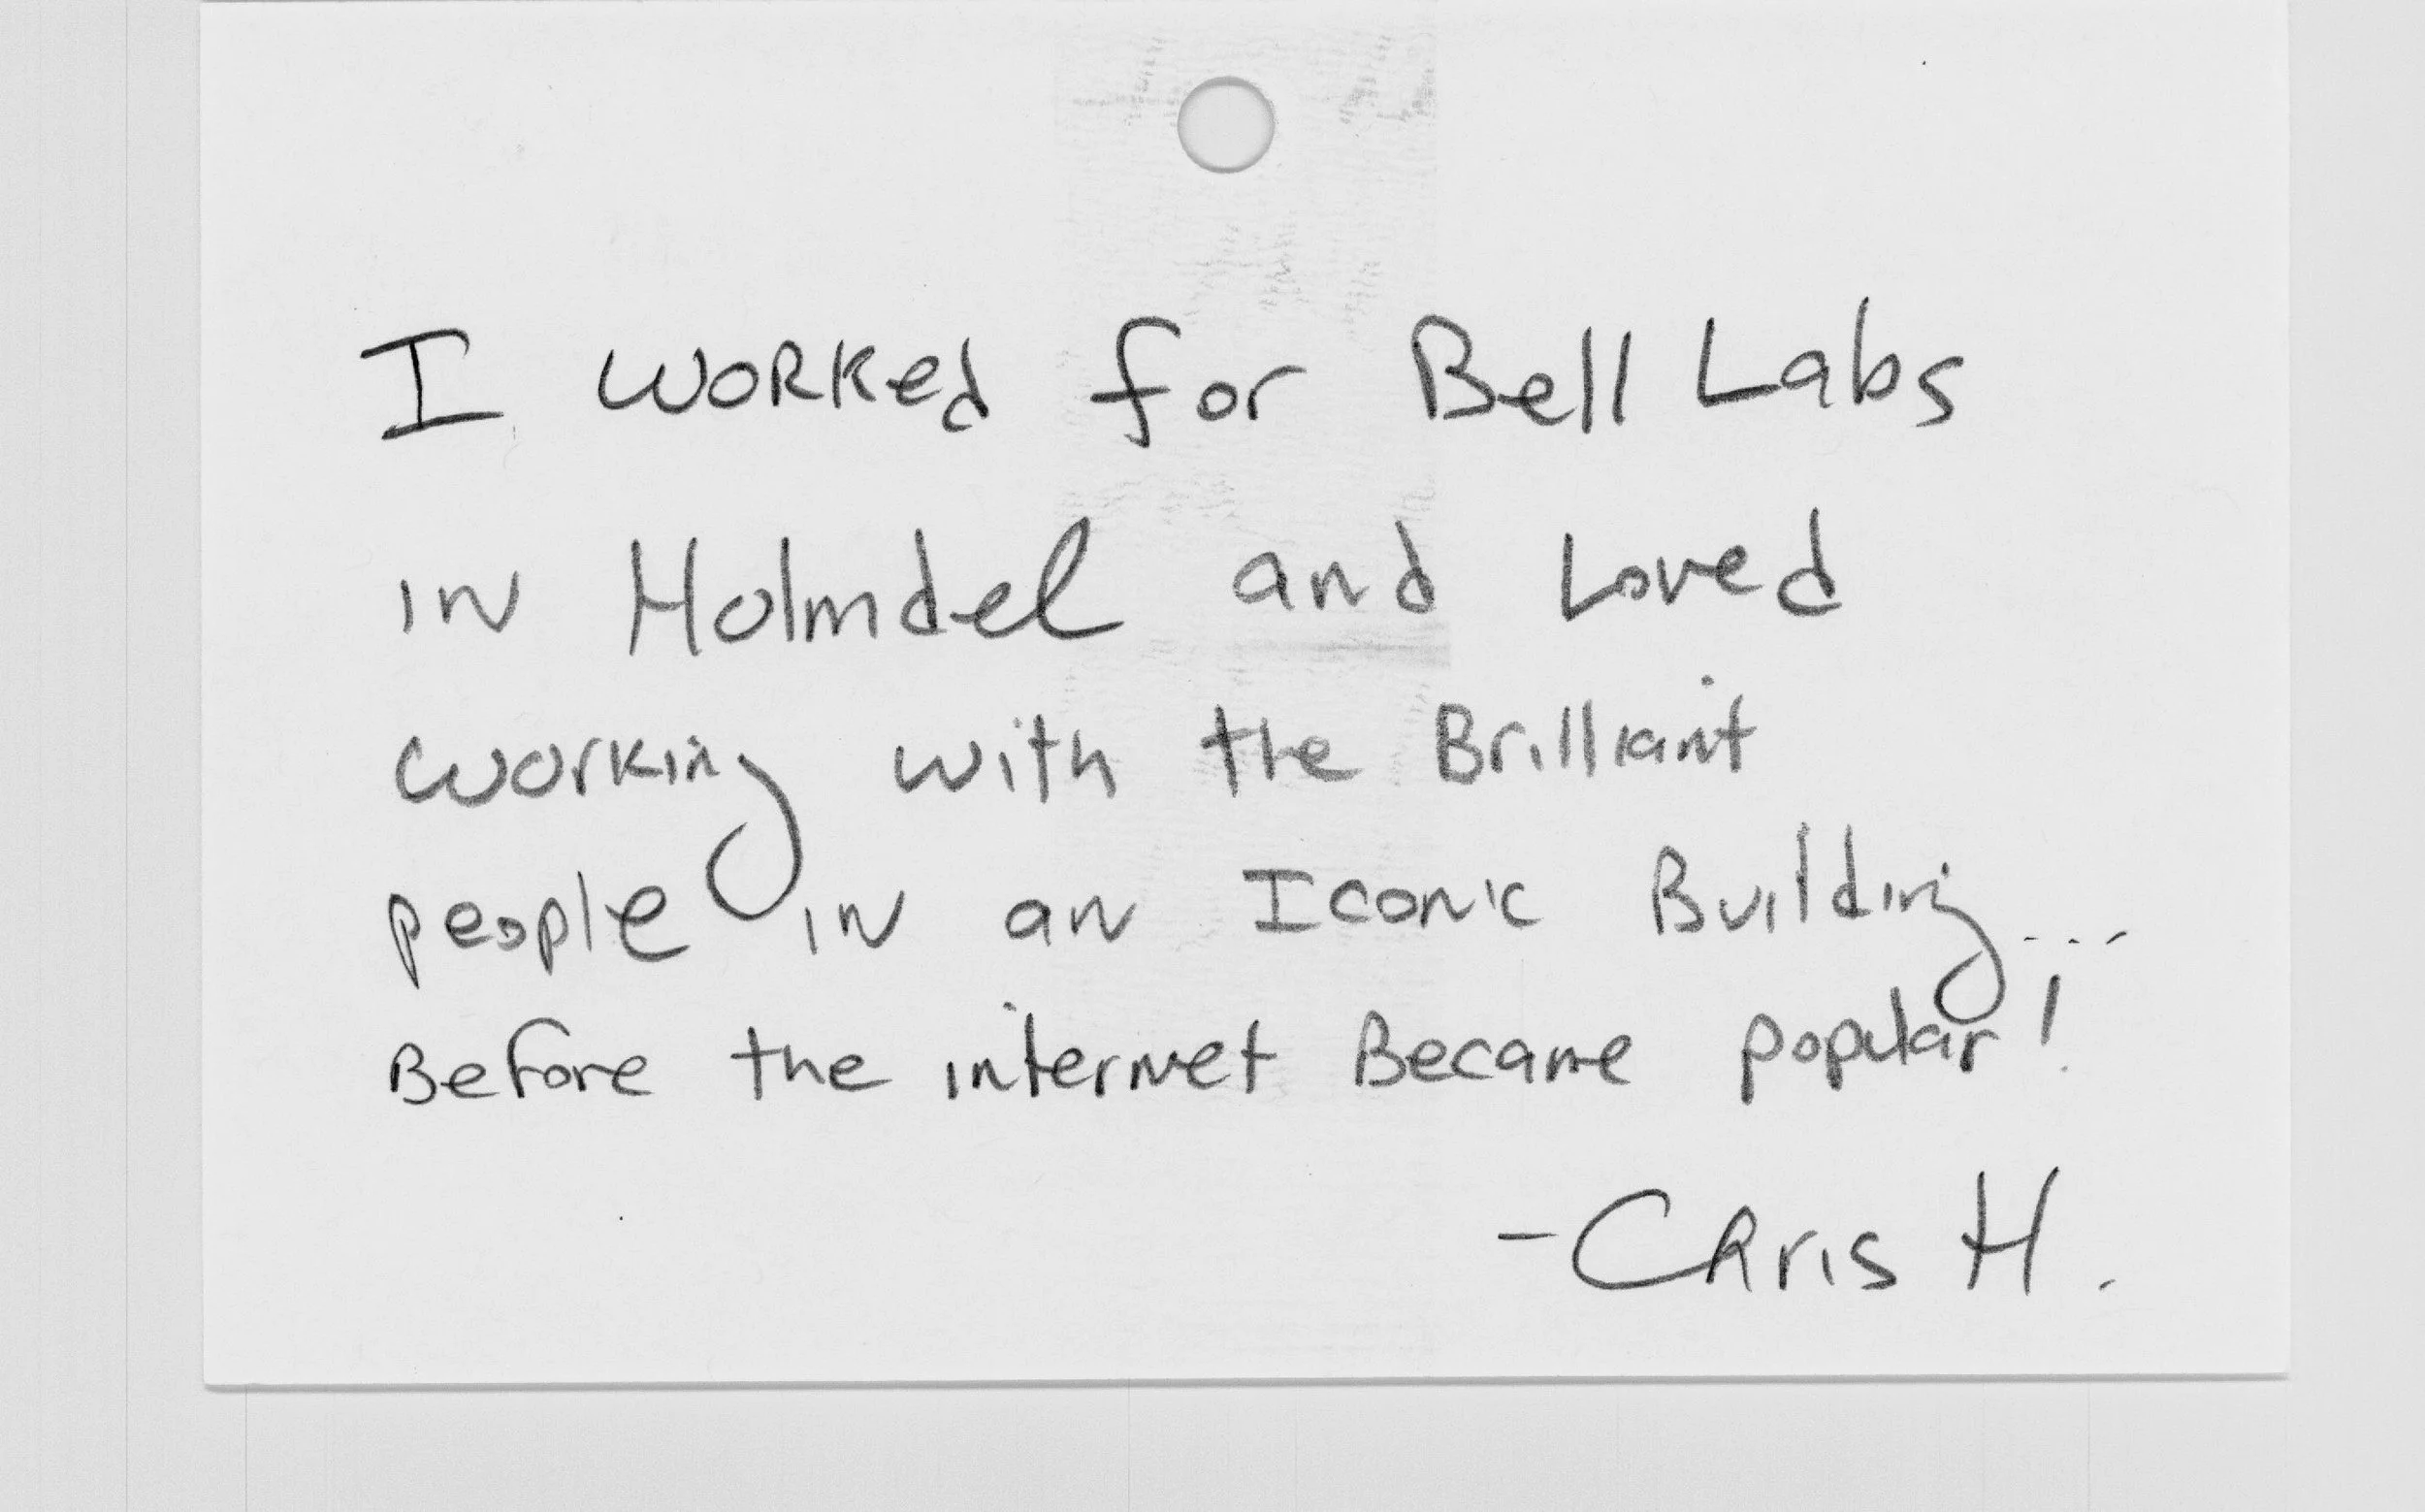 I worked for Bell Labs
in Holmdel and Loved
working with the Brilliant
people in an Iconic Building...
Before the internet Became popular!
- Chris H.